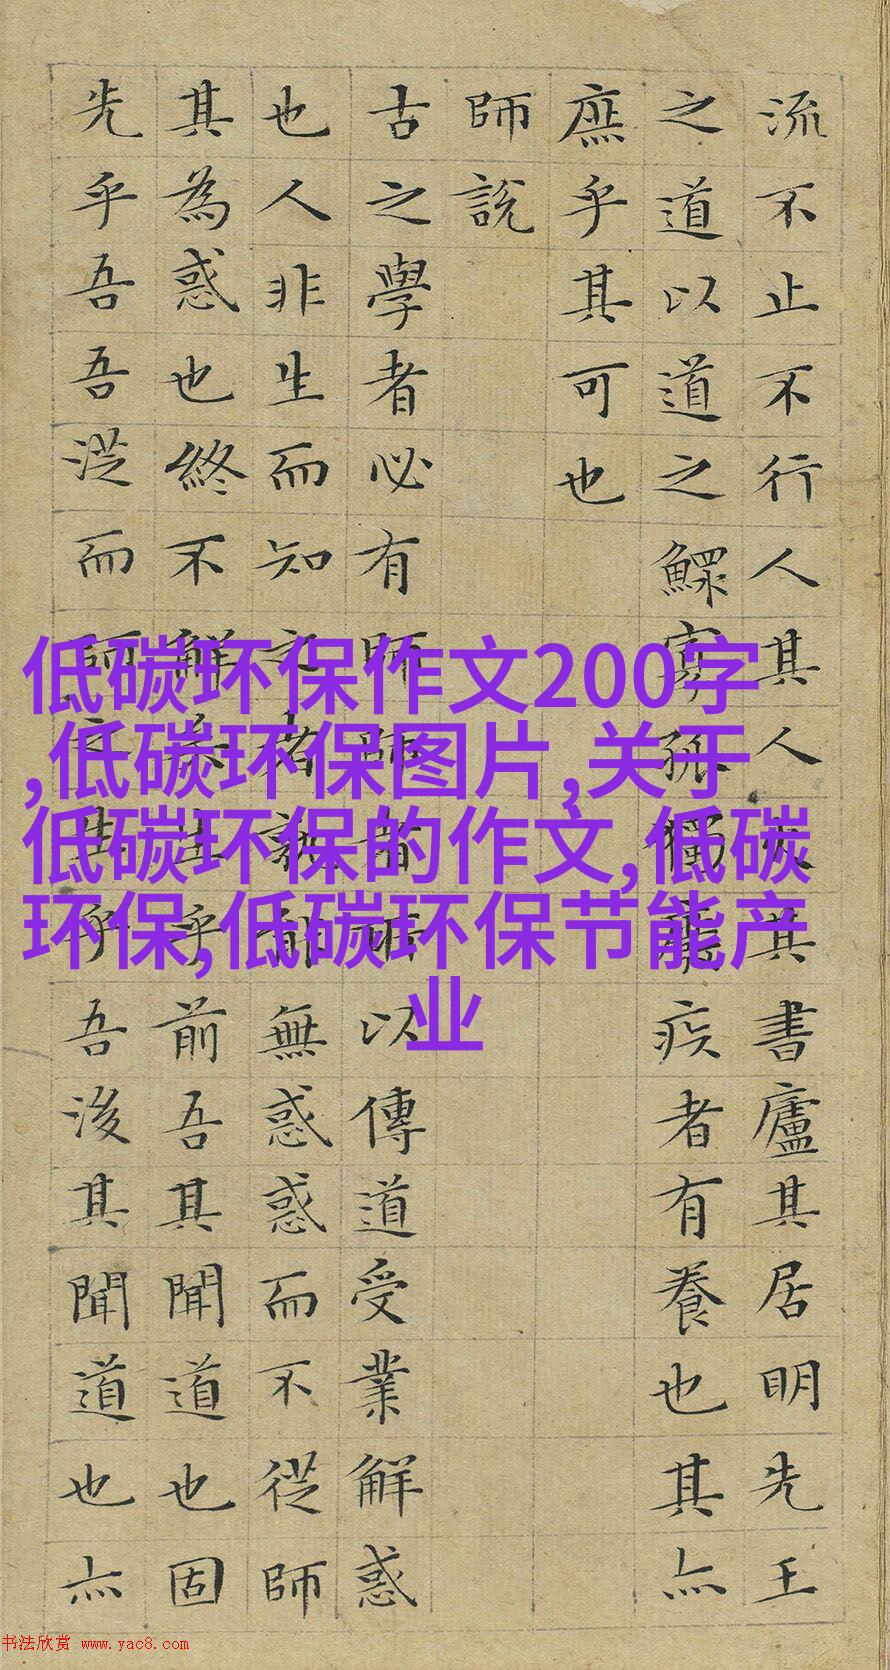 流不止不行人其人火其書廬其居明先王
之道以道之鰥寡孤獨廢疾者有養也其亦
庶乎其可也
師說
古之學者必有師師者所以傳道受業解惑
也人非生而知之者孰能無惑惑而不從師
其為惑也終不解矣生乎前吾其聞道也固
先乎吾吾從而師之生乎吾後其聞道也亦
低碳环保作文200字
,低碳环保图片,关于
低碳环保的作文,低碳
环保,低碳环保节能产
业
书法欣赏 www.yac8.com